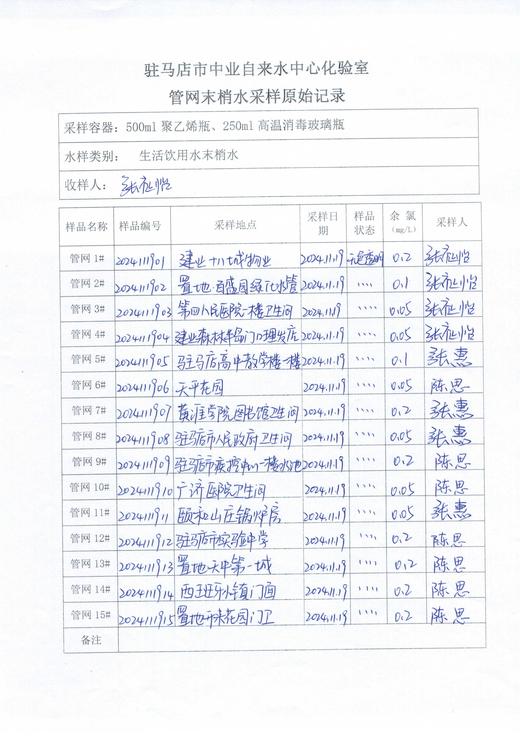 驻马店市中业自来水中心化验室
管网末梢水采样原始记录
采样容器：500ml 聚乙烯瓶、250ml 高温消毒玻璃瓶
水样类别： 生活饮用水末梢水
收样人： 张祉怡
样品名称 样品编号 采样地点 采样日期 样品状态 余 氯 (mg/L) 采样人
管网 1# 2024111901 建业十八城物业 2024.11.19 无色透明 0.2 张祉怡
管网 2# 2024111902 置地·百盛园绿化水管 2024.11.19 〃〃 0.1 张祉怡
管网 3# 2024111903 第四人民医院一楼卫生间 2024.11.19 〃〃 0.05 张祉怡
管网 4# 2024111904 建业森林半岛门口理发店 2024.11.19 〃〃 0.05 张祉怡
管网 5# 2024111905 驻马店高中教学楼一楼 2024.11.19 〃〃 0.1 张惠
管网 6# 2024111906 天平花园 2024.11.19 〃〃 0.05 陈思
管网 7# 2024111907 黄淮学院图书馆卫生间 2024.11.19 〃〃 0.2 张惠
管网 8# 2024111908 驻马店市人民政府卫生间 2024.11.19 〃〃 0.05 张惠
管网 9# 2024111909 驻马店市疾控中心一楼水池 2024.11.19 〃〃 0.2 陈思
管网 10# 2024111910 广济医院卫生间 2024.11.19 〃〃 0.05 陈思
管网 11# 2024111911 颐和山庄锅炉房 2024.11.19 〃〃 0.05 张惠
管网 12# 2024111912 驻马店市实验中学 2024.11.19 〃〃 0.2 陈思
管网 13# 2024111913 置地天中第一城 2024.11.19 〃〃 0.2 陈思
管网 14# 2024111914 西班牙小镇门面 2024.11.19 〃〃 0.2 陈思
管网 15# 2024111915 置地 花园门卫 2024.11.19 〃〃 0.2 陈思
备注